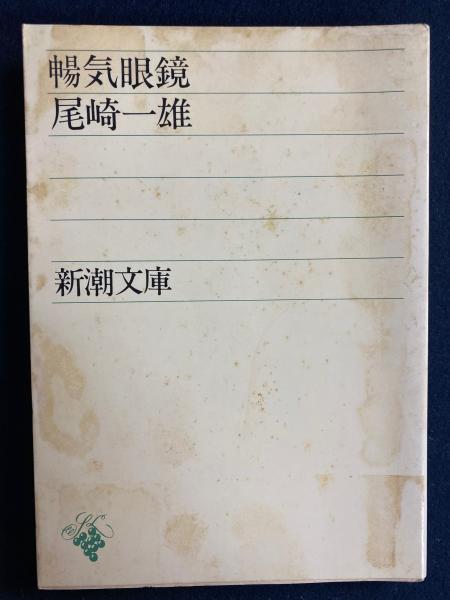 暢気眼鏡
尾崎一雄
新潮文庫